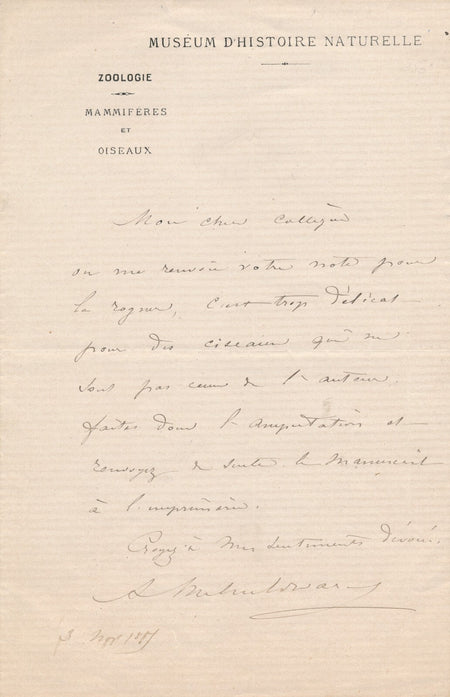 MUSÉUM D'HISTOIRE NATURELLE
ZOOLOGIE
MAMMIFÈRES
ET
OISEAUX
Mon cher collègue
on me renvoie votre note pour
la rogner, c'est trop délicat
pour des ciseaux qui ne
sont pas ceux de l'auteur.
faites donc l'amputation et
renvoyez de suite le manuscrit
à l'imprimerie.
Croyez à mes sentiments dévoués.
A
3 Nov